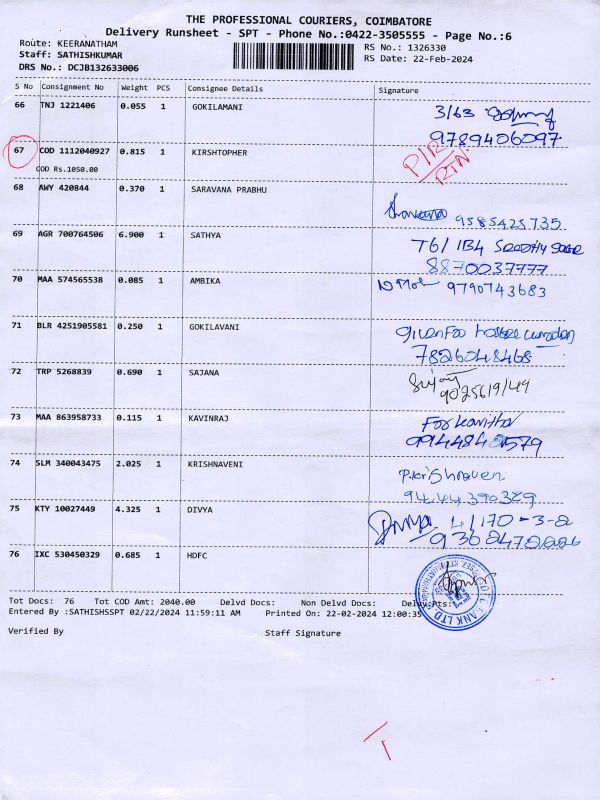 THE PROFESSIONAL COURIERS, COIMBATORE
Delivery Runsheet - SPT - Phone No.:0422-3505555 - Page No.:6
Route: KEERANATHAM
Staff: SATHISHKUMAR
DRS No.: DCJB132633006
RS No.: 1326330
RS Date: 22-Feb-2024
S No Consignment No Weight PCS Consignee Details Signature
66 TNJ 1221406 0.055 1 GOKILAMANI
3/63
9789406097
67 COD 1112040927 0.815 1 KIRSHTOPHER
COD Rs.1050.00
P/R
RTN
68 AWY 420844 0.370 1 SARAVANA PRABHU
9585425735
69 AGR 700764506 6.900 1 SATHYA
T6/1B4
8870037777
70 MAA 574565538 0.085 1 AMBIKA
9790743683
71 BLR 4251905581 0.250 1 GOKILAVANI
7826048468
72 TRP 5268839 0.690 1 SAJANA
9025619149
73 MAA 863958733 0.115 1 KAVINRAJ
For
74 SLM 340043475 2.025 1 KRISHNAVENI
P.Krishnaven
9444390329
75 KTY 10027449 4.325 1 DIVYA
Divya 4/170-3-2
76 IXC 530450329 0.685 1 HDFC
BANK LTD.
Tot Docs: 76 Tot COD Amt: 2040.00 Delvd Docs: Non Delvd Docs: Delvy.Pts:
Entered By :SATHISHSSPT 02/22/2024 11:59:11 AM Printed On: 22-02-2024 12:00:35
Verified By Staff Signature